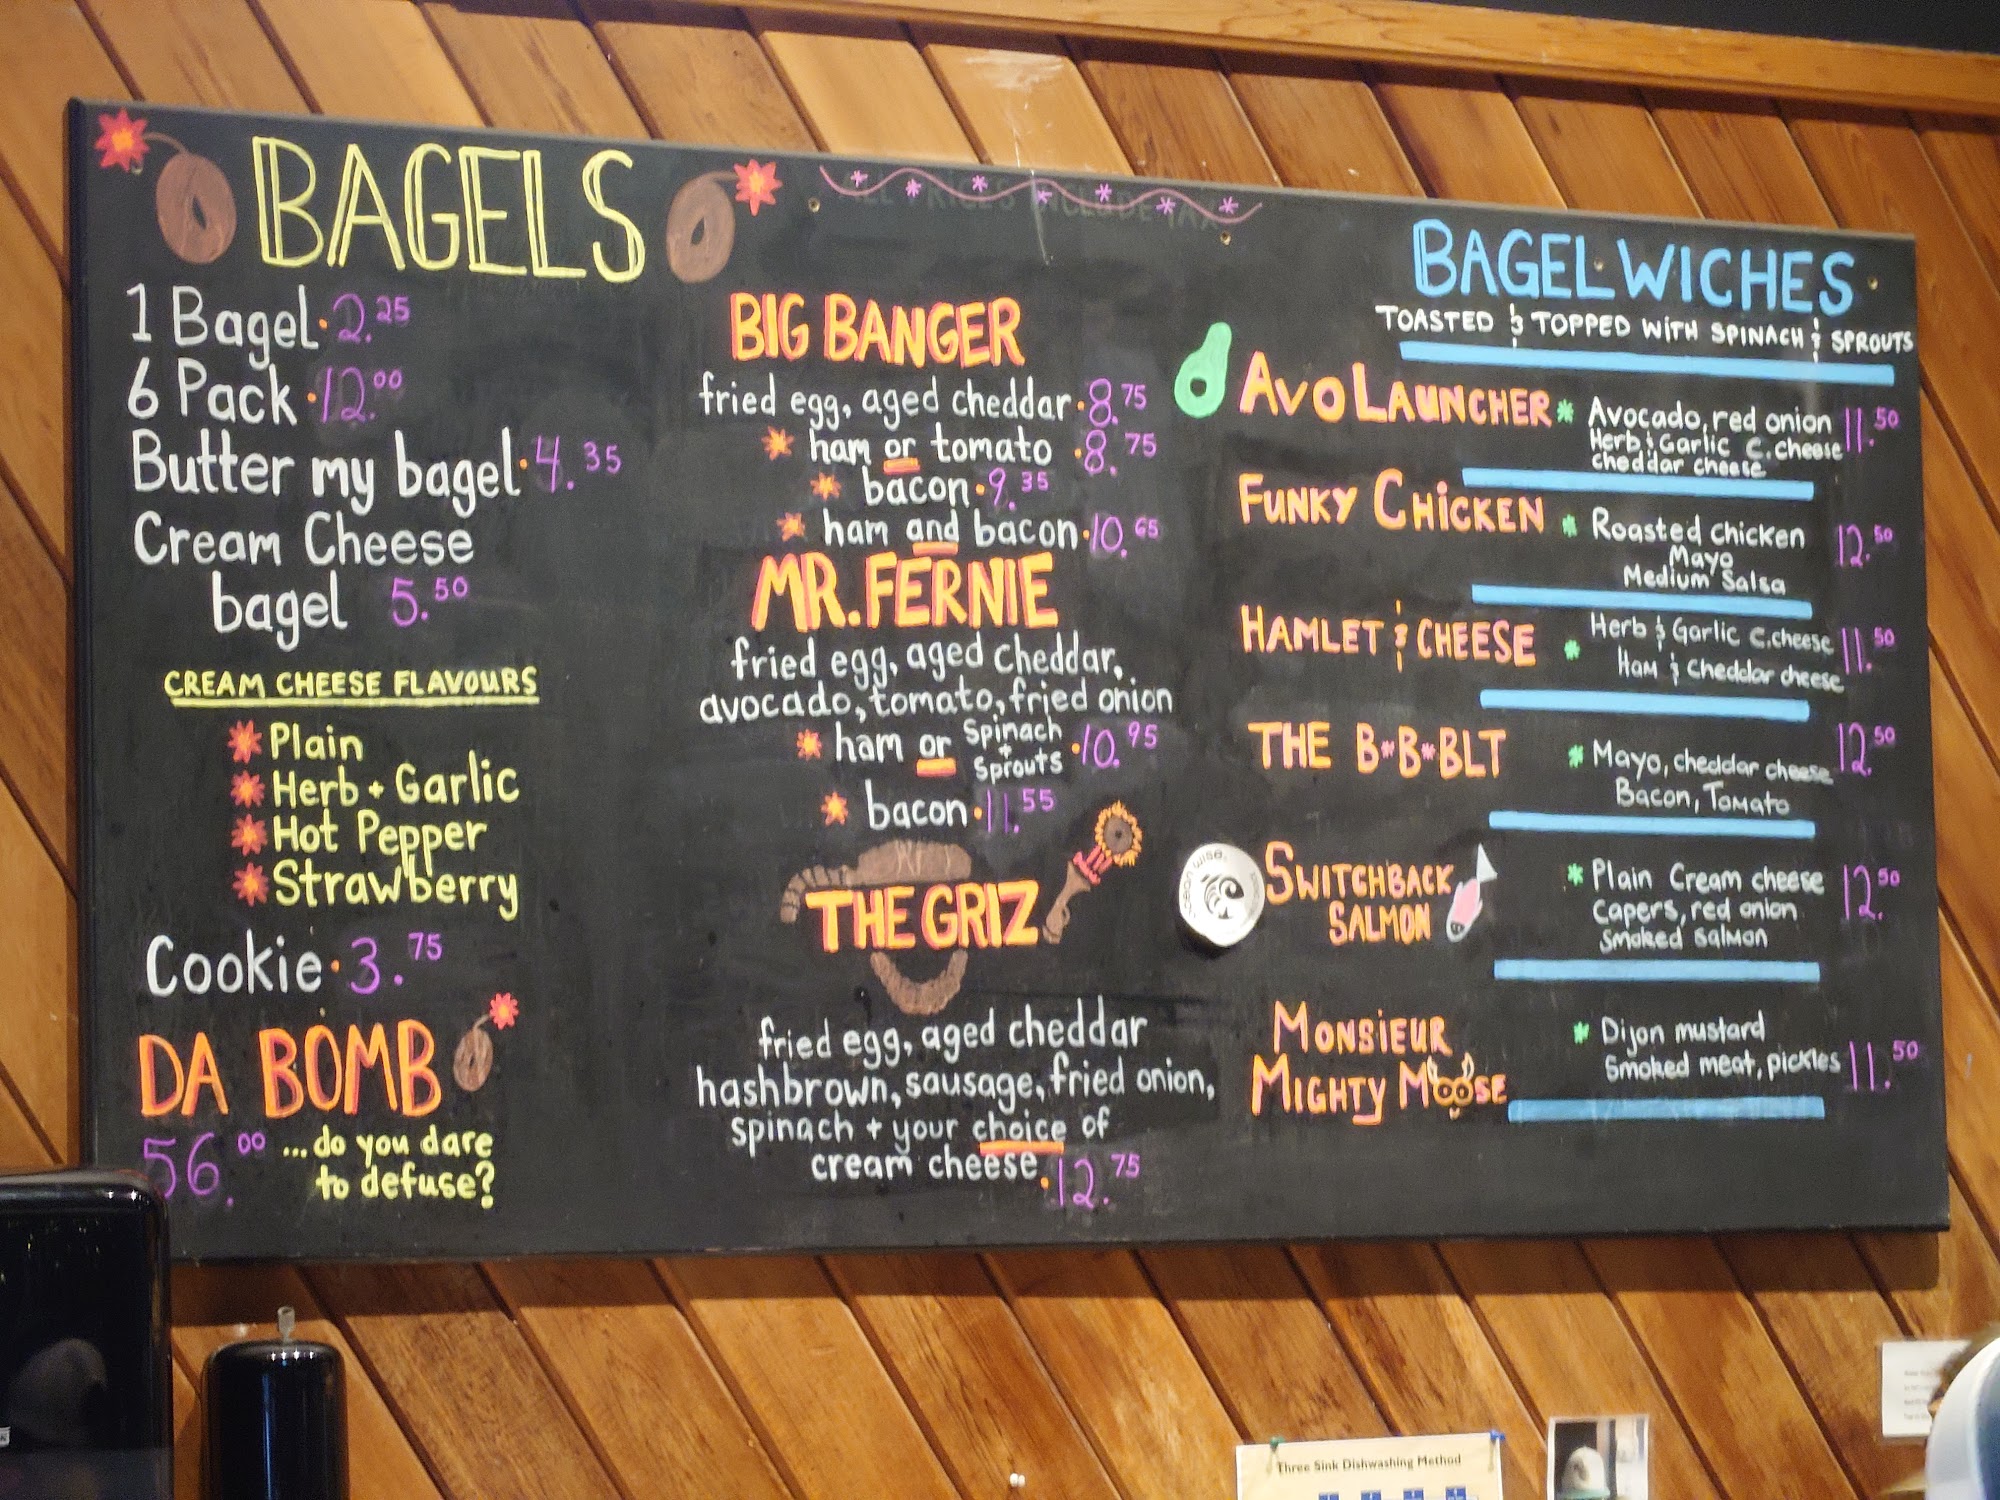 BAGELS
1 Bagel · 2.25
6 Pack · 12.00
Butter my bagel · 4.35
Cream Cheese
bagel 5.50
CREAM CHEESE FLAVOURS
Plain
Herb + Garlic
Hot Pepper
Strawberry
Cookie · 3.75
DA BOMB
56.00 ...do you dare
to defuse?
ALL PRICES INCLUDE TAX
BIG BANGER
fried egg, aged cheddar · 8.75
ham or tomato · 8.75
bacon · 9.35
ham and bacon · 10.65
MR. FERNIE
fried egg, aged cheddar,
avocado, tomato, fried onion
ham or Spinach + Sprouts · 10.95
bacon · 11.55
THE GRIZ
fried egg, aged cheddar
hashbrown, sausage, fried onion,
spinach + your choice of
cream cheese · 12.75
BAGEL WICHES
TOASTED & TOPPED WITH SPINACH & SPROUTS
AVO LAUNCHER * Avocado, red onion 11.50
Herb & Garlic C. cheese
cheddar cheese
FUNKY CHICKEN * Roasted chicken 12.50
Mayo
Medium Salsa
HAMLET & CHEESE * Herb & Garlic C. cheese 11.50
Ham & Cheddar cheese
THE B*B*BLT * Mayo, cheddar cheese 12.50
Bacon, Tomato
SWITCHBACK * Plain Cream cheese 12.50
SALMON Capers, red onion
Smoked Salmon
ocean wise
MONSIEUR * Dijon mustard
MIGHTY MOOSE Smoked meat, pickles 11.50
Three Sink Dishwashing Method